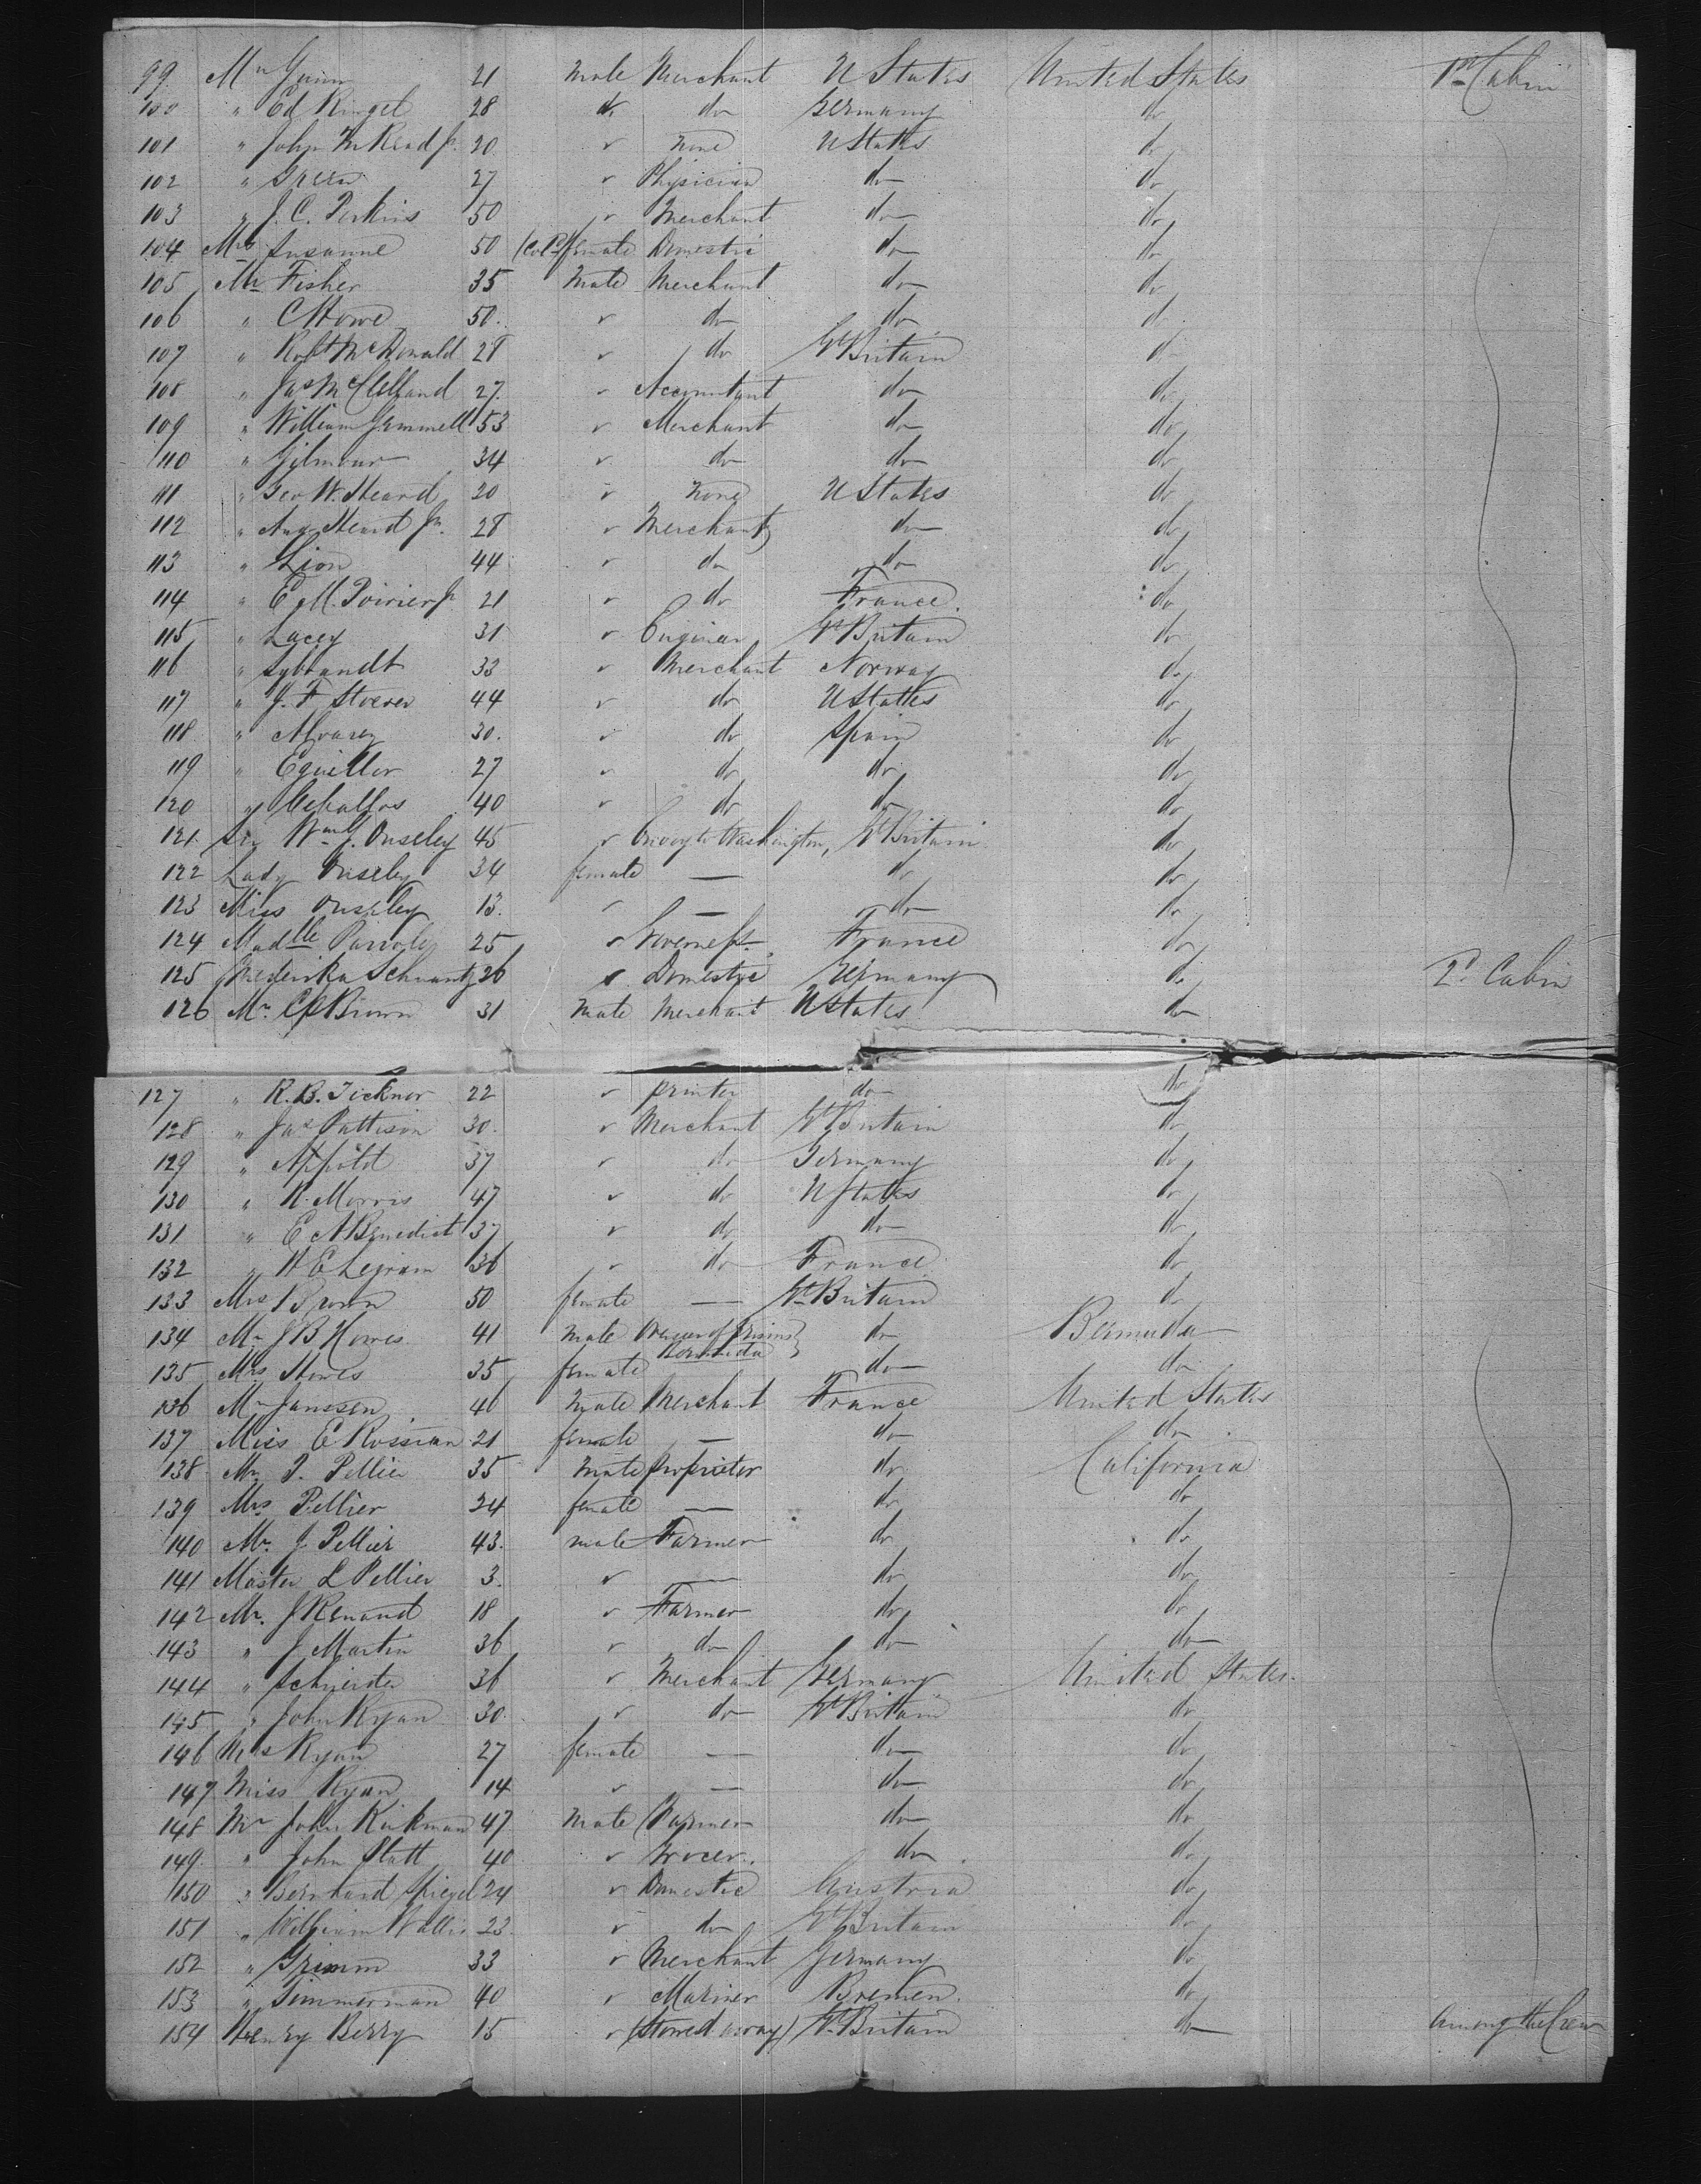 99 Mr Gunn 21 male Merchant U States United States 1st Cabin
100 " Ed Ringel 28 do do Germany do
101 " John M Read Jr 20 " none U States do
102 " Green 27 " Physician do do
103 " J. C. Perkins 50 " Merchant do do
104 Mrs Susanne 50 (Cold) female Domestic do do
105 Mr Fisher 35 Male Merchant do do
106 " C Howe 50. " do do d
107 " Robt McDonald 28 " do Gt Britain d
108 " Jas McClelland 27. " Accountant do do
109 " William Gemmell 53 " Merchant do do
110 " Gilmour 34 " do do do
111 " Geo W. Heard 20 " none U States do
112 " Aug Heard Jr. 28 " Merchant do do
113 " Lion 44 " do do do
114 " E. M. Poirier Jr 21 " do France. do
115 " Lacey 31 " Engineer Gt Britain do
116 " Sybrandt 33 " Merchant Norway do
117 " J. F Stoever 44 " do U States do
118 " Alvarez 30. " do Spain do
119 " Eguillor 27 " do do do
120 " Ceballos 40 " do do do
121. Sir Wm G. Ouseley 45 " Envoy to Washington, Gt Britain do
122 Lady Ouseley 34 female — do do
123 Miss Ouseley 13. " — do do
124 Madlle 25 " Governess France do
125 Frederika Schwantz 26 " Domestic Germany do 2d Cabin
126 Mr. Brown 31 male Merchant U States do
127 " R. B. Ticknor 22 " printer do do
128 " Jas Pattison 30. " Merchant Gt Britain do
129 " Appold 37 " do Germany do
130 " R. Morris 47 " do U States do
131 " E A Benedict 37 " do do do
132 " H E Legram 36 " do France do
133 Mrs Brown 50 female — Gt Britain do
134 Mr J B Howes 41 male Overseer of Prisons Bermuda } do Bermuda
135 Mrs. Howes 35 female do do
136 Mr Janssen 46 male Merchant France United States
137 Miss E Rossian 21 female — do do
138 Mr. P. Pellier 35 male proprietor do California
139 Mrs Pellier 24 female — do do
140 Mr. J. Pellier 43. male Farmer do do
141 Master L Pellier 3. " — do do
142 Mr. J Renaud 18 " Farmer do do
143 " J Martin 36 " do do do
144 " Schneider 36 " Merchant Germany United States.
145 " John Ryan 30. " do Gt Britain do
146 Mrs Ryan 27 female — do do
147 Miss Ryan 14 " — do do
148 Mr John Kirkman 47 male Farmer do do
149. " John Platt 40 " Grocer. do do
150 " Bernhard Spiegel 24 " Domestic Austria do
151 " William Wallis 23. " do Gt Britain do
152 " Grimm 33 " Merchant Germany do
153 " Timmerman 40 " Mariner Bremen. do
154 Henry Berry 15 " (Stowed away) Gt Britain do Among the Crew